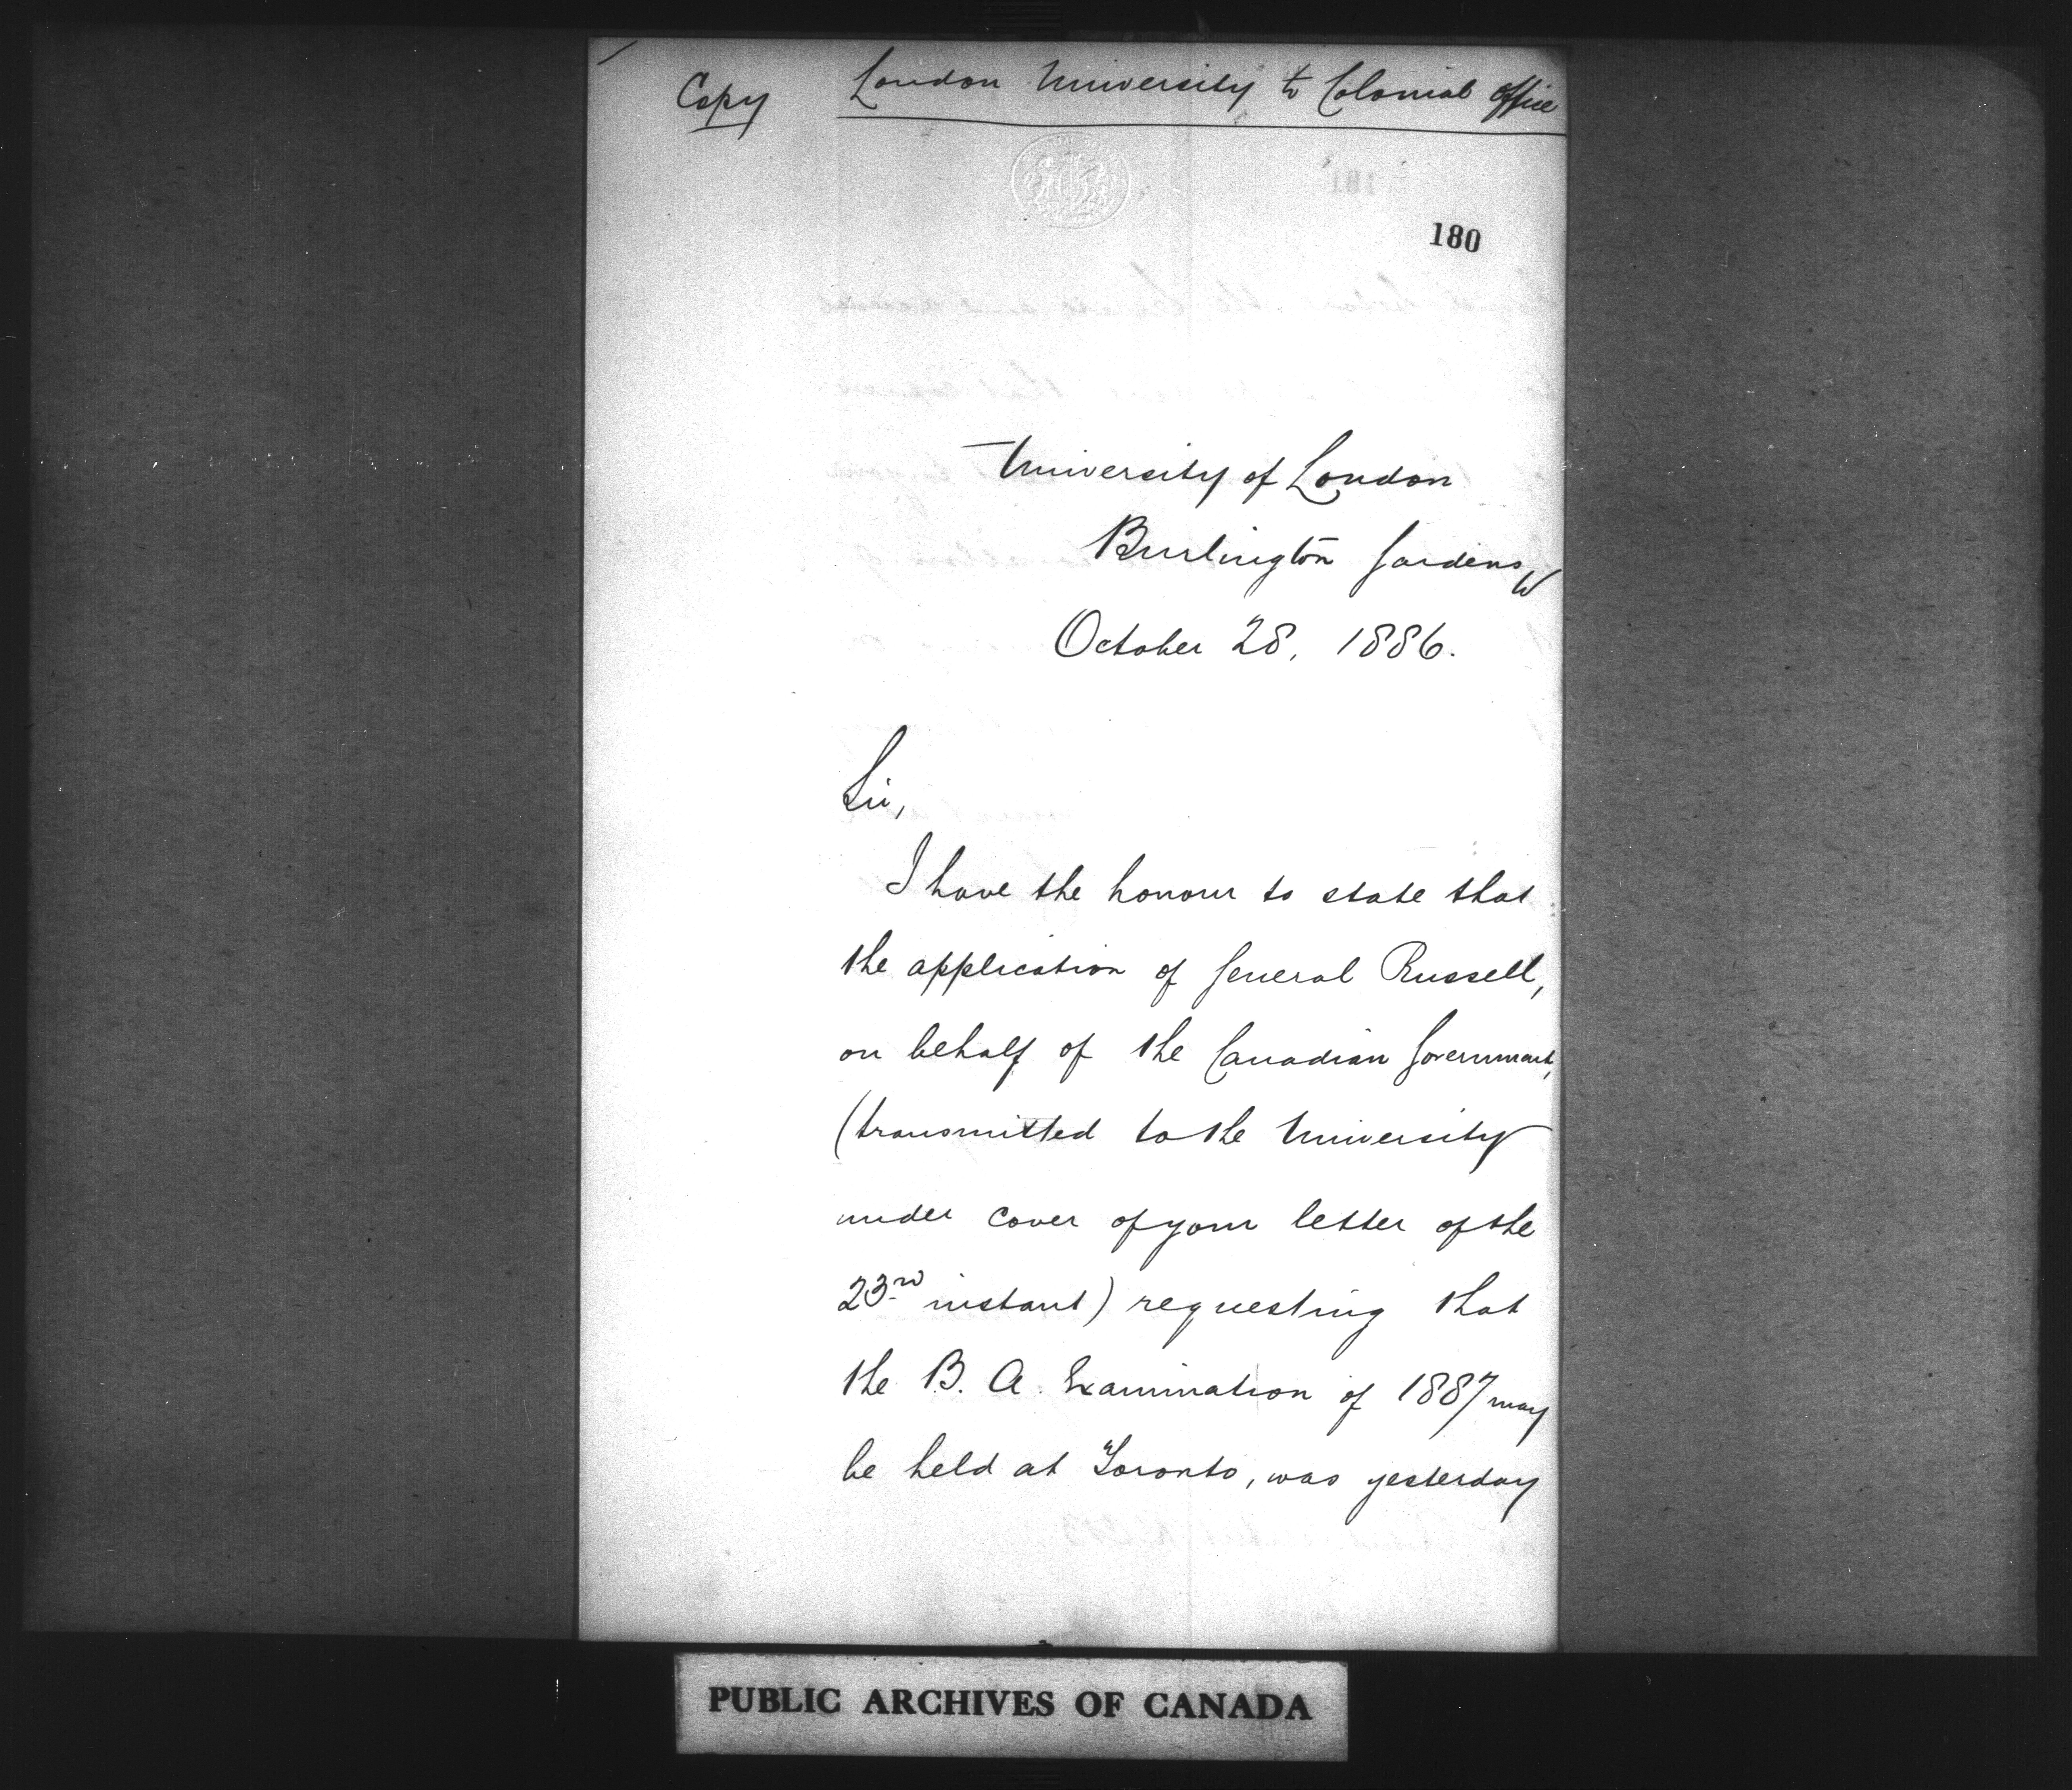 Copy London University to Colonial Office
180
University of London
Burlington Gardens, W
October 28, 1886.
Sir,
I have the honour to state that
the application of General Russell,
on behalf of the Canadian Government,
(transmitted to the University
under cover of your letter of the
23rd instant) requesting that
the B. A. Examination of 1887 may
be held at Toronto, was yesterday
PUBLIC ARCHIVES OF CANADA